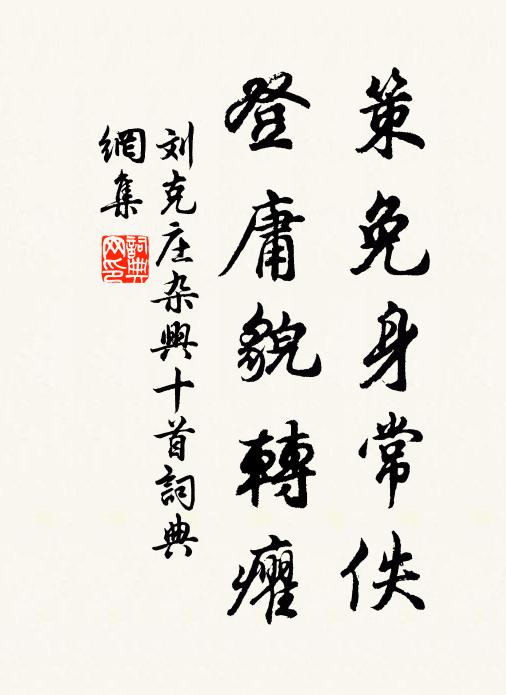 策免身常佚
登庸貌轉癯
刘克庄杂興十首詞典
網集
詞典
网印